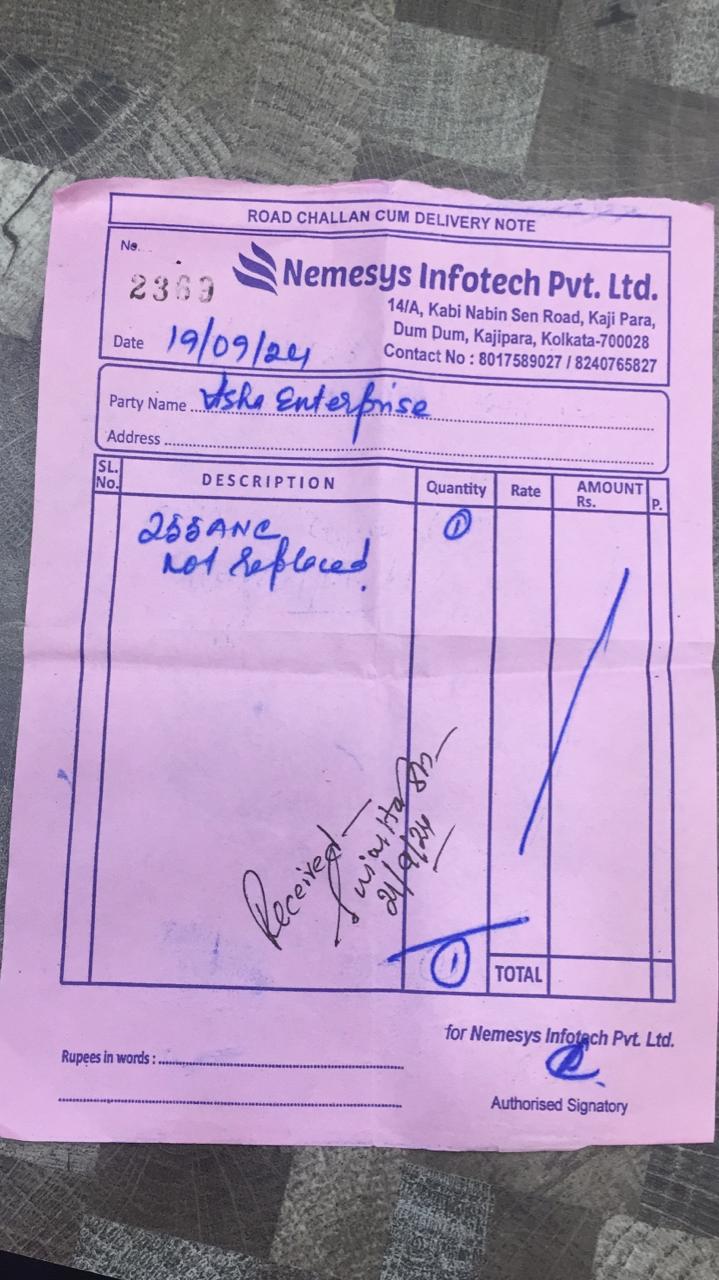 ROAD CHALLAN CUM DELIVERY NOTE
No.
2369
Nemesys Infotech Pvt. Ltd.
14/A, Kabi Nabin Sen Road, Kaji Para,
Dum Dum, Kajipara, Kolkata-700028
Contact No : 8017589027 / 8240765827
Date 19/09/24
Party Name Asha Enterprise
Address
SL. No. DESCRIPTION Quantity Rate AMOUNT Rs. P.
255 ANC 1
not replaced
Received
21/9/24
1 TOTAL
for Nemesys Infotech Pvt. Ltd.
Rupees in words :
Authorised Signatory